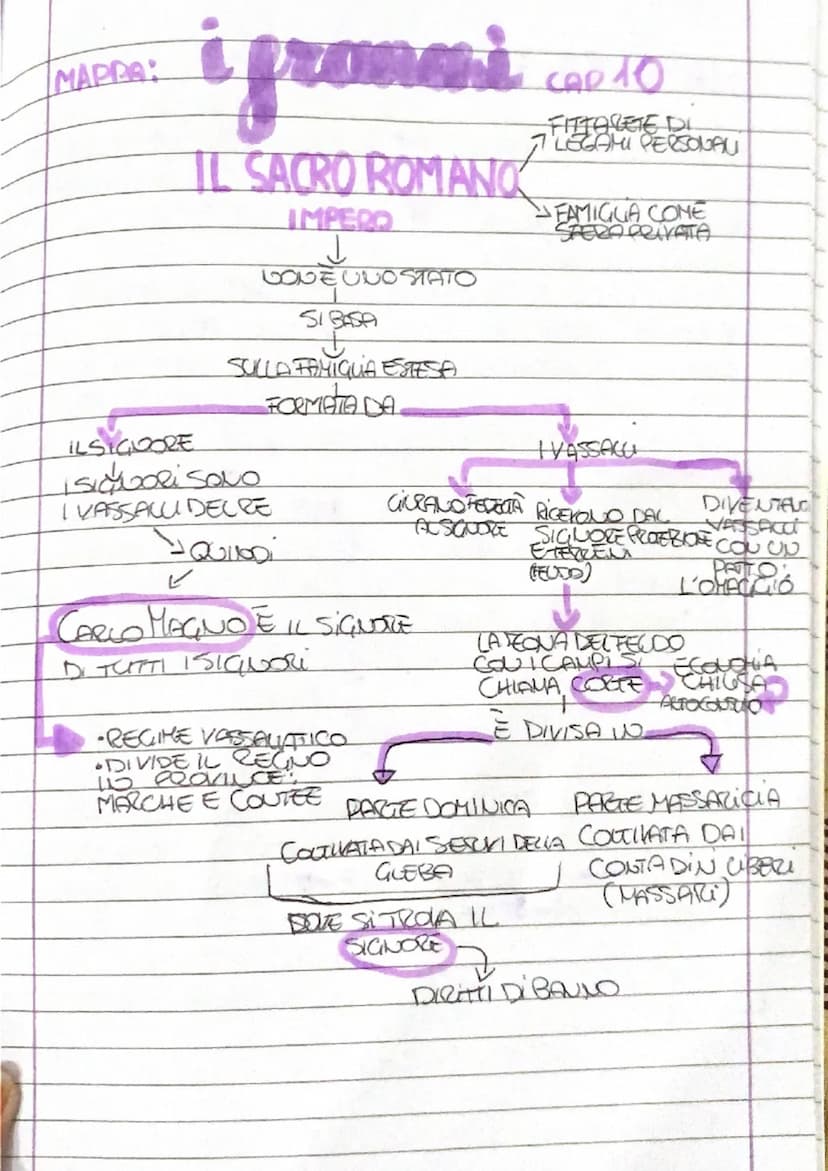 MAPPA:
CAP 10
FITTA RETE DI
LEGAMI PERSONALI
IL SACRO ROMANO
IMPERO
FAMIGLIA COME
SFERA PRIVATA
NON È UNO STATO
SI BASA
SULLA FAMIGLIA ESTESA
FORMATA DA
IL SIGNORE
I SIGNORI SONO
I VASSALLI DEL RE
QUINDI
CARLO MAGNO È IL SIGNORE
DI TUTTI I SIGNORI
• REGIME VASSALLATICO
• DIVIDE IL REGNO
IN PROVINCE:
MARCHE E CONTEE
I VASSALLI
GIURANO FEDELTÀ
AL SIGNORE
RICEVONO DAL
SIGNORE PROTEZIONE
E TERRENI
(FEUDO)
DIVENTANO
VASSALLI
CON UN
PATTO:
L'OMAGGIO
LA ZONA DEL FEUDO
CON I CAMPI SI
CHIAMA CORTE
ECONOMIA
CHIUSA
È DIVISA IN
PARTE DOMINICA
COLTIVATA DAI SERVI DELLA
GLEBA
DOVE SI TROVA IL
SIGNORE
DIRITTI DI BANNO
PARTE MASSARICIA
COLTIVATA DAI
CONTADINI LIBERI
(MASSARI)